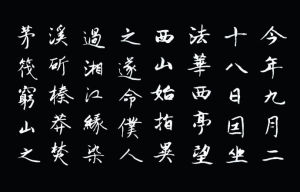 今年九月二
十八日因坐
法華西亭望
西山始指異
之遂命僕人
過湘江緣染
溪斫榛莽焚
茅筏窮山之